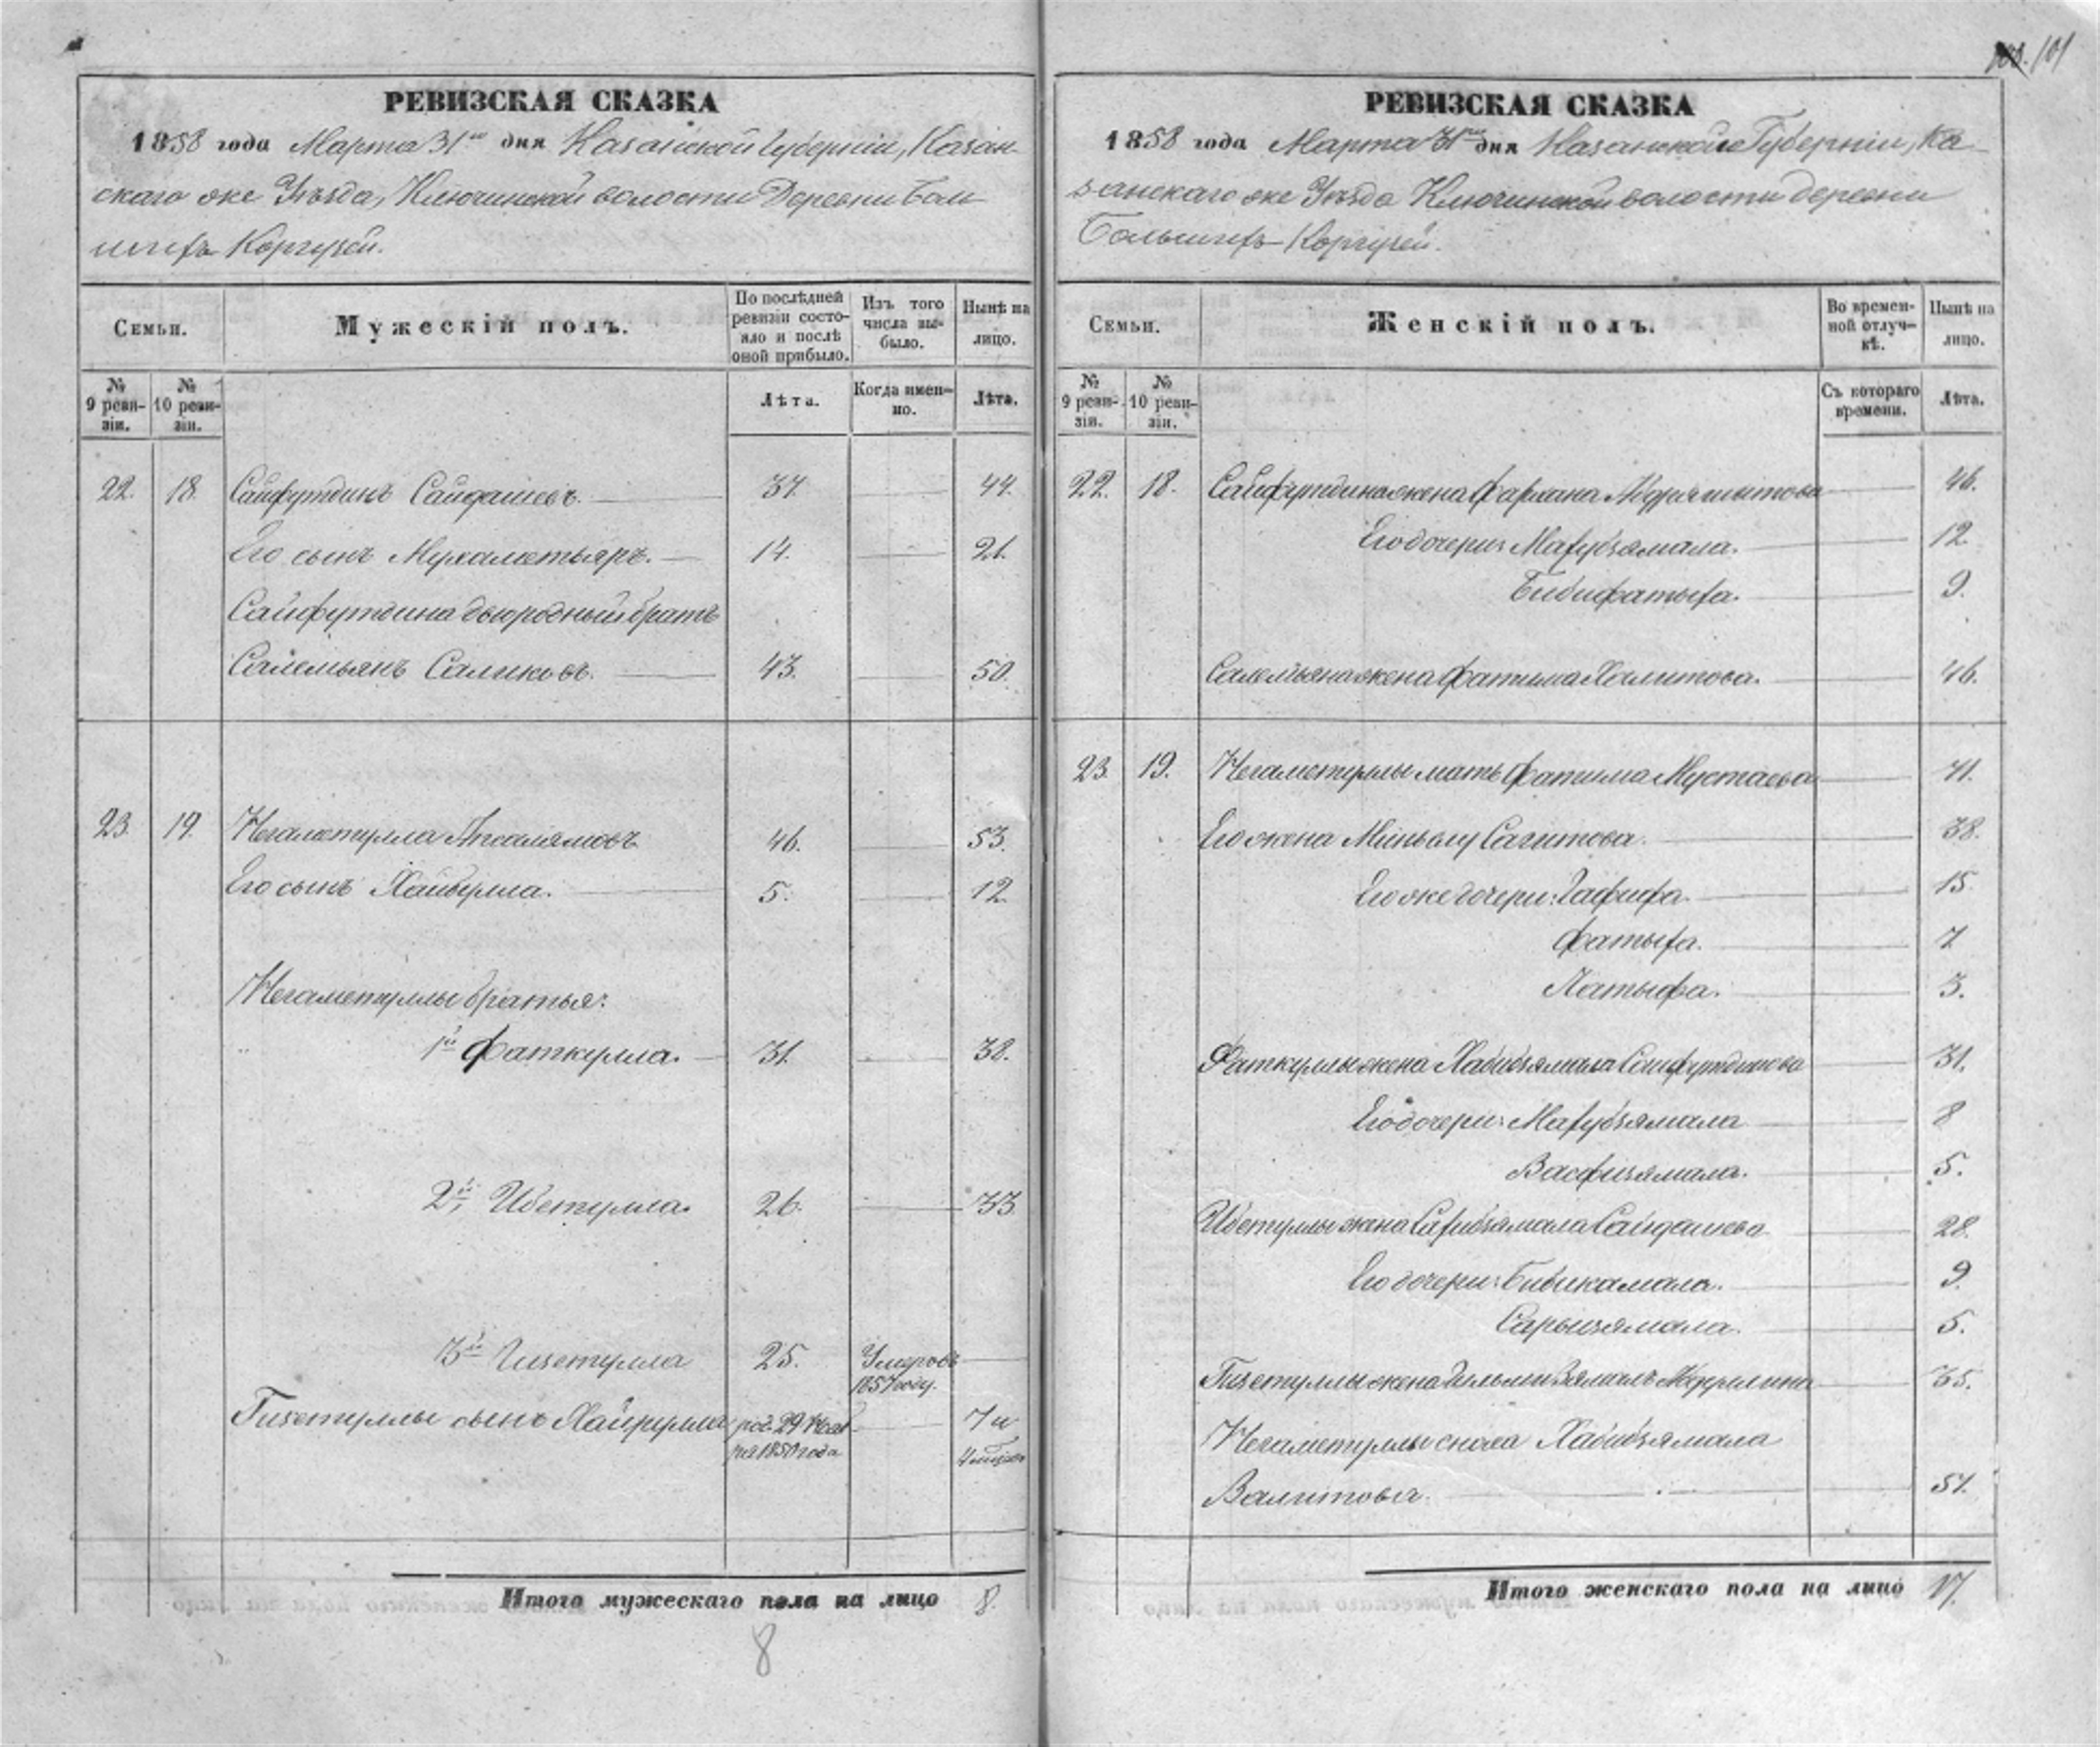 101
РЕВИЗСКАЯ СКАЗКА
1858 года Марта 31го дня Казанской Губерніи, Казан-
скаго же Уѣзда, Ключинской волости Деревни Боль
шихъ Коргузей.
Семьи.
Мужескій полъ.
По послѣдней ревизіи состо-
яло и послѣ оной прибыло.
Изъ того числа вы-
было.
Нынѣ на лицо.
№ 9 реви-
зіи.
№ 10 реви-
зіи.
Лѣта.
Когда имен-
но.
Лѣта.
22. 18. Сайфутдинъ Сайдашевъ. 37. 44.
Его сынъ Мухаметьяръ. 14. 21.
Сайфутдина двоюродный братъ
Салемьянъ Салиховъ. 43. 50.
23. 19. Негаметулла Апсалямовъ 46. 53.
Его сынъ Хайбулла. 5. 12.
Негаметуллы братья:
1й Фаткулла. 31. 38.
2й, Ибетулла. 26. 33
3й Гизетулла 25. Умеръ въ
1857 году.
Гизетуллы сынъ Хайрулла род. 29 Нояб-
ря 1850 года 7 и
4 месяца
Итого мужескаго пола на лицо 8.
8
РЕВИЗСКАЯ СКАЗКА
1858 года Марта 31го дня Казанской Губерніи, Ка-
занскаго же Уѣзда Ключинской волости деревни
Большихъ Коргузей.
Семьи.
Женскій полъ.
Во времен-
ной отлуч-
кѣ.
Нынѣ на лицо.
№ 9 реви-
зіи.
№ 10 реви-
зіи.
Съ котораго времени.
Лѣта.
22. 18. Сайфутдина жена Фархана 46.
Его дочери: Магубзямала. 12.
Бибифатыха. 9.
Салемьяна жена Фатима Халитова. 46.
23. 19. Негаметуллы мать Фатима Мустаева 71.
Его жена Миньолу Сагитова. 38.
Его же дочери: Гафифа. 15.
Фатыха. 7
Латыфа. 3.
Фаткуллы жена Хабибзямала Сайфутдинова 31.
Его дочери: Магубзямала 8
Васфизямала. 5.
Ибетуллы жена Сагибзямала Сайдашева 28.
Его дочери: Бибикамала. 9.
Сарвизямала. 5.
Гизетуллы жена 35.
Негаметуллы сноха Хабибзямала
Валитова. 51.
Итого женскаго пола на лицо 17.